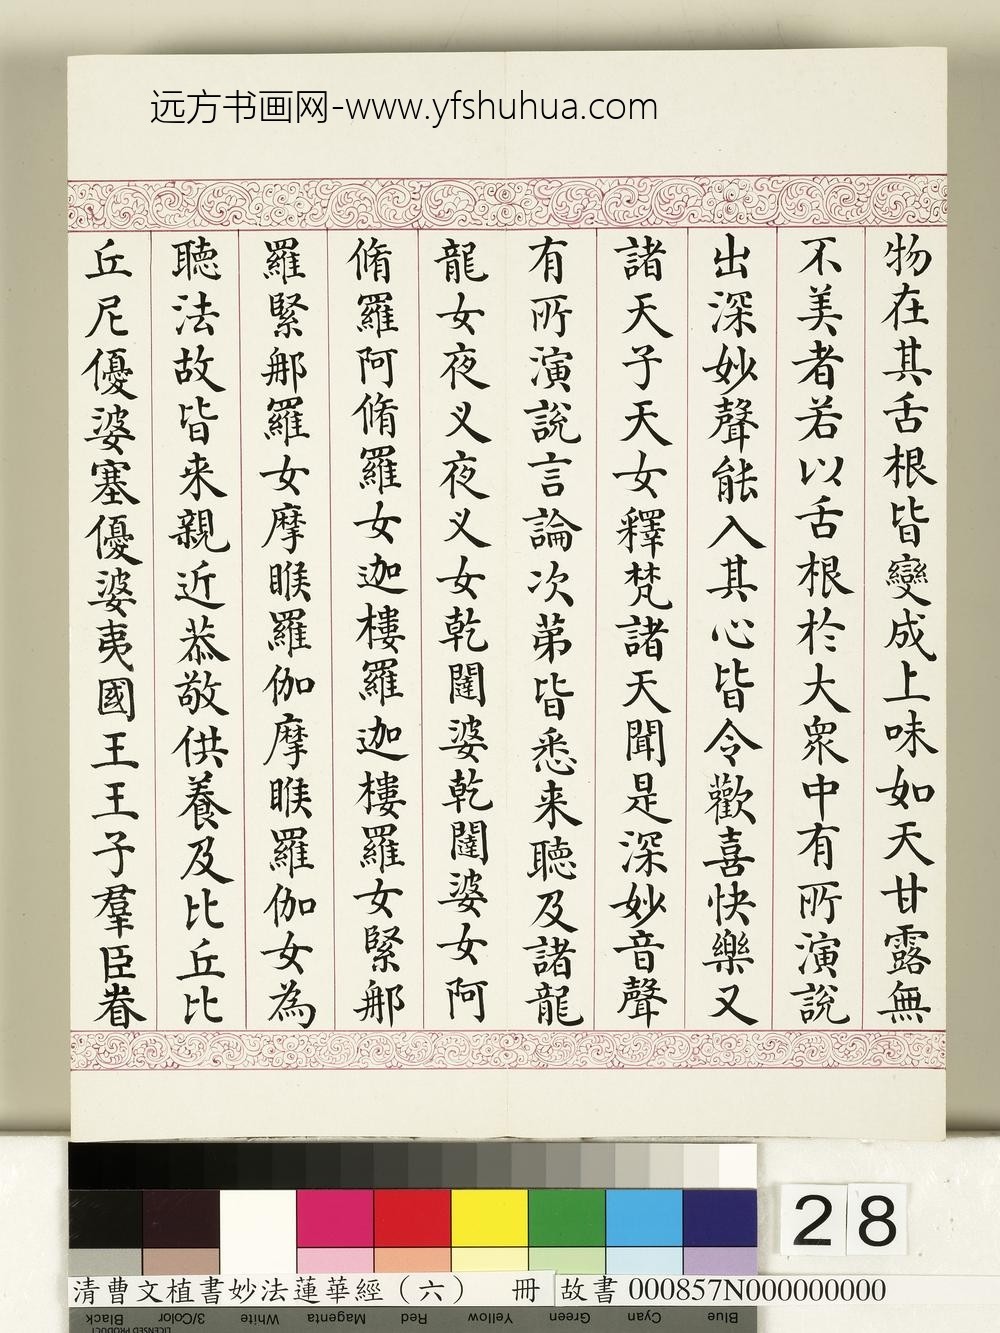 远方书画网-www.yfshuhua.com
物在其舌根皆變成上味如天甘露無
不美者若以舌根於大眾中有所演說
出深妙聲能入其心皆令歡喜快樂又
諸天子天女釋梵諸天聞是深妙音聲
有所演說言論次第皆悉来聽及諸龍
龍女夜义夜义女乾闥婆乾闥婆女阿
脩羅阿脩羅女迦樓羅迦樓羅女緊那
羅緊那羅女摩睺羅伽摩睺羅伽女為
聽法故皆来親近恭敬供養及比丘比
丘尼優婆塞優婆夷國王王子羣臣眷
28
清曹文植書妙法蓮華經（六） 冊 故書 000857N000000000
Black
3/Color
White
Magenta
Red
Yellow
Green
Cyan
Blue
LICENSED PRODUCT